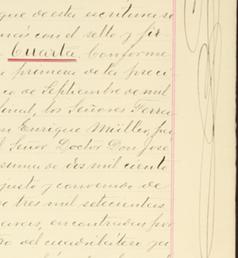 que de esta escritura se
con el sello y fir
Cuarta. Conforme
a promesa de la preci
co de Septiembre de mil
los Señores Ferra
Enrique Müller, por
el Señor Doctor Don José
suma de dos mil ciento
justo y convenido de
tres mil setecientos
encontradas por
del cuadrilátero